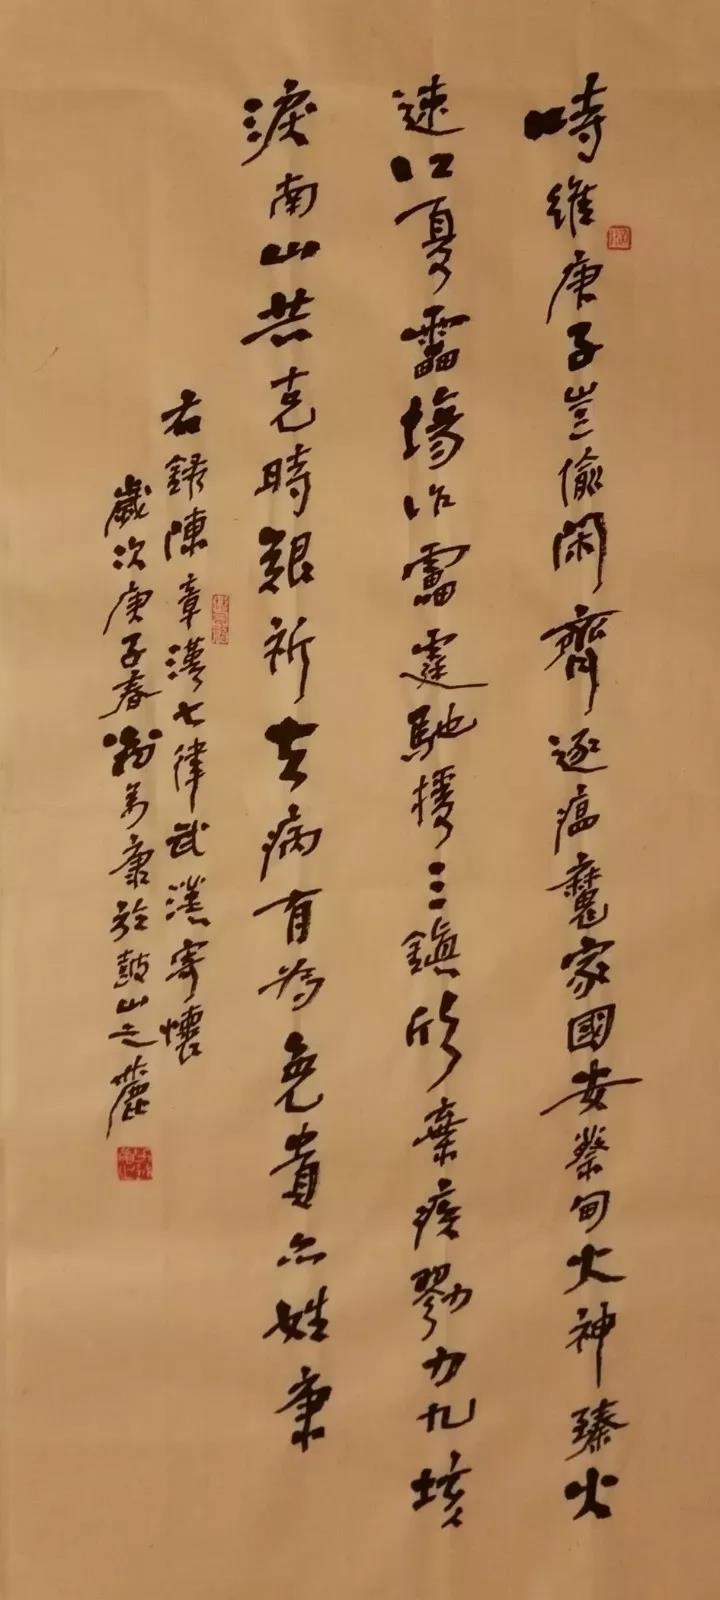 時維庚子豈偷閑齊逐瘟魔家國安蔡甸火神臻火
速江夏雷場作雷霆馳援三鎮欣棄疾勠力九垓
淚南山共克時艱祈去病有為免貴亦姓康
右錄陳章漢七律武漢寄懷
歲次庚子春萬康於鼓山之麓